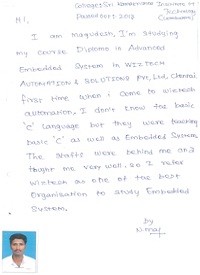 College: Sri Institute of Technology
Passed out: 2013 (Coimbatore)
Hi,
I am Magudesh, I'm studying
my course Diploma in Advanced
Embedded System in WIZTECH
AUTOMATION & SOLUTIONS Pvt, Ltd, Chennai
first time when i come to wiztech
automation, I don't know the basic
'C' language but they were teaching
basic 'C' as well as Embedded System,
The staffs were behind me and
taught me very well. So I refer
wiztech as one of the best
Organisation to study Embedded
System.
by